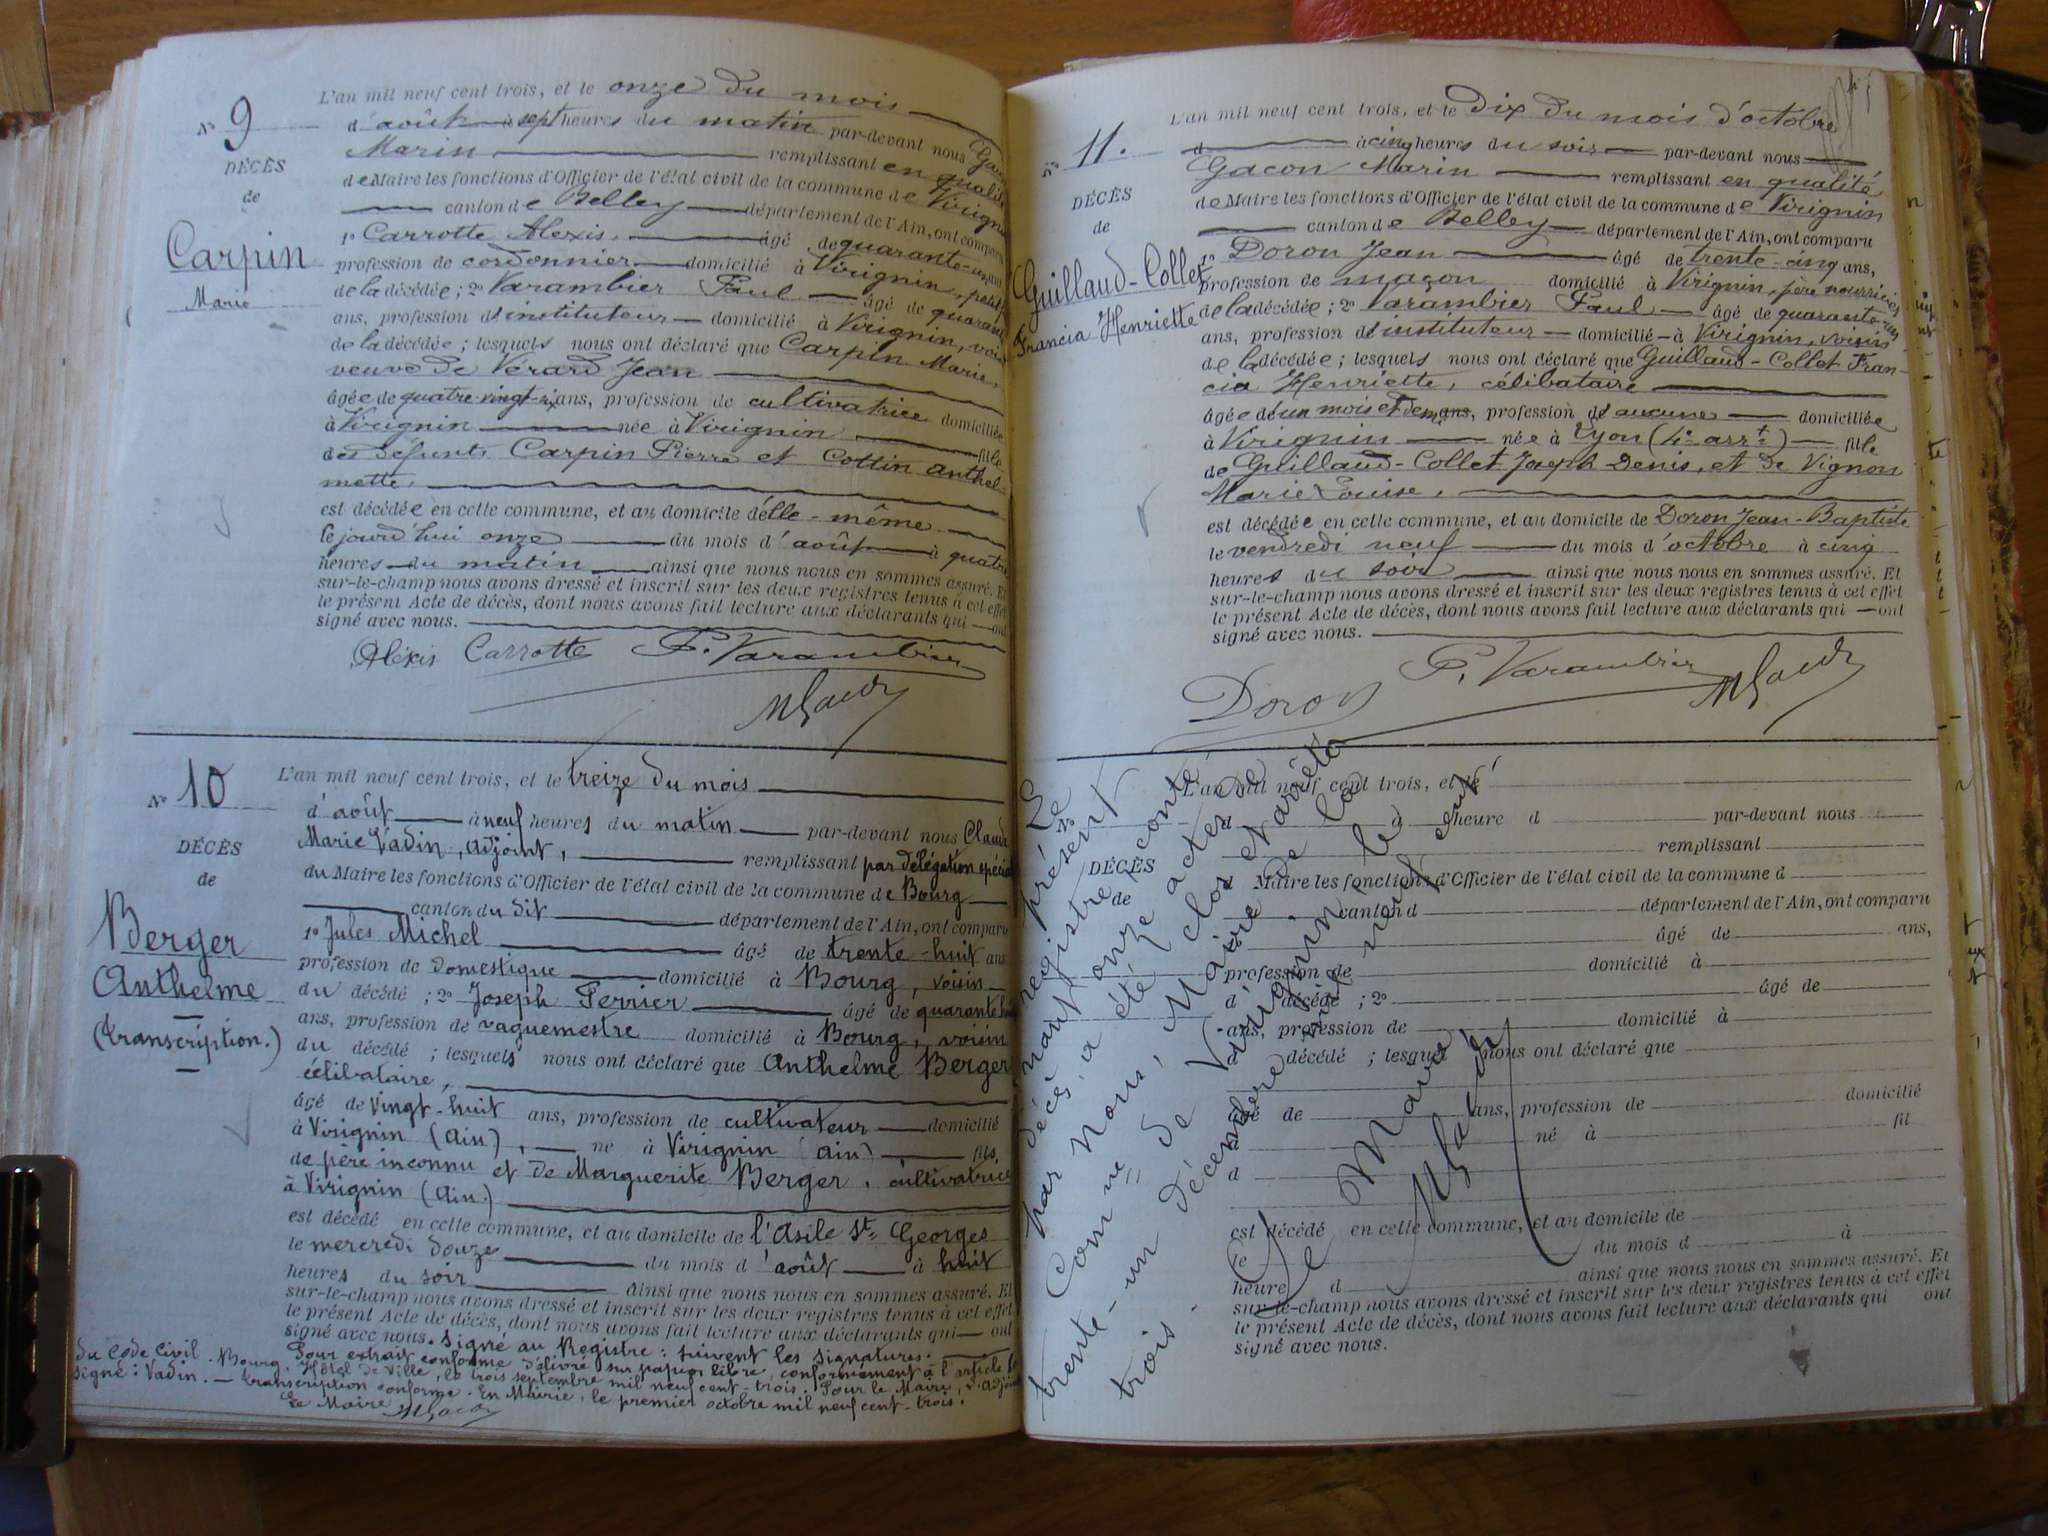 N° 9
DÉCÈS
de
Carpin
Marie
L'an mil neuf cent trois, et le onze du mois
d'août à sept heures du matin par-devant nous
Marin remplissant en qualité
de Maire les fonctions d'Officier de l'état civil de la commune de Virignin
canton de Belley département de l'Ain, ont comparu
1° Carrotte Alexis, âgé de quarante-un ans
profession de cordonnier domicilié à Virignin,
de la décédée ; 2° Varambier Paul âgé de
ans, profession d'instituteur domicilié à Virignin,
de la décédée ; lesquels nous ont déclaré que Carpin Marie,
veuve de Vérard Jean
âgée de quatre-vingt-six ans, profession de cultivatrice domiciliée
à Virignin née à Virignin fille
des défunts Carpin Pierre et Cottin Anthel-
mette,
est décédée en cette commune, et au domicile d'elle-même
le jourd'hui onze du mois d'août à quatre
heures du matin ainsi que nous nous en sommes assuré. Et
sur-le-champ nous avons dressé et inscrit sur les deux registres tenus à cet effet
le présent Acte de décès, dont nous avons fait lecture aux déclarants qui ont
signé avec nous.
Alexis Carrotte P. Varambier
N° 10
DÉCÈS
de
Berger
Anthelme
(transcription.)
L'an mil neuf cent trois, et le treize du mois
d'août à neuf heures du matin par-devant nous Claude
Marie Vadin, adjoint, remplissant par délégation spéciale
du Maire les fonctions d'Officier de l'état civil de la commune de Bourg
canton du dit département de l'Ain, ont comparu
1° Jules Michel âgé de trente-huit ans
profession de domestique domicilié à Bourg, voisin
du décédé ; 2° Joseph Perrier âgé de quarante
ans, profession de vaguemestre domicilié à Bourg, voisin
du décédé ; lesquels nous ont déclaré que Anthelme Berger
célibataire,
âgé de vingt-huit ans, profession de cultivateur domicilié
à Virignin (Ain), né à Virignin (Ain) fils
de père inconnu et de Marguerite Berger, cultivatrice
à Virignin (Ain)
est décédé en cette commune, et au domicile de l'Asile St Georges
le mercredi douze du mois d'août à huit
heures du soir Ainsi que nous nous en sommes assuré. Et
sur-le-champ nous avons dressé et inscrit sur les deux registres tenus à cet effet
le présent Acte de décès, dont nous avons fait lecture aux déclarants qui ont
signé avec nous. Signé au Registre : suivent les signatures.
Pour extrait conforme délivré sur papier libre, conformément à l'article
du Code Civil. Bourg, Hôtel de Ville, le trois septembre mil neuf cent-trois. Pour le Maire, l'adjoint
signé : Vadin. — transcription conforme. En Mairie, le premier octobre mil neuf cent-trois.
Le Maire
N° 11.
DÉCÈS
de
Guillaud-Collet
Francia Henriette
L'an mil neuf cent trois, et le dix du mois d'octobre
à cinq heures du soir par-devant nous
Gacon Marin remplissant en qualité
de Maire les fonctions d'Officier de l'état civil de la commune de Virignin
canton de Belley département de l'Ain, ont comparu
1° Doron Jean âgé de trente-cinq ans,
profession de maçon domicilié à Virignin, père nourricier
de la décédée ; 2° Varambier Paul âgé de quarante-
ans, profession d'instituteur domicilié à Virignin, voisin
de la décédée ; lesquels nous ont déclaré que Guillaud-Collet Fran-
cia Henriette, célibataire
âgée de un mois et demi ans, profession d'aucune domiciliée
à Virignin née à Lyon (4e arrt) fille
de Guillaud-Collet Joseph Denis, et de Vignon
Marie Louise,
est décédée en cette commune, et au domicile de Doron Jean-Baptiste
le vendredi neuf du mois d'octobre à cinq
heures du soir ainsi que nous nous en sommes assuré. Et
sur-le-champ nous avons dressé et inscrit sur les deux registres tenus à cet effet
le présent Acte de décès, dont nous avons fait lecture aux déclarants qui ont
signé avec nous.
Doron P. Varambier
N°
DÉCÈS
de
L'an mil neuf cent trois, et le
d à heure d par-devant nous
remplissant
Maire les fonctions d'Officier de l'état civil de la commune d
canton d département de l'Ain, ont comparu
âgé de ans,
profession de domicilié à
d décédé ; 2° âgé de
ans, profession de domicilié à
d décédé ; lesquel nous ont déclaré que
âgé de ans, profession de domicilié
à né à fil
d
est décédé en cette commune, et au domicile de
le du mois d à
heure d ainsi que nous nous en sommes assuré. Et
sur-le-champ nous avons dressé et inscrit sur les deux registres tenus à cet effet
le présent Acte de décès, dont nous avons fait lecture aux déclarants qui ont
signé avec nous.
Le présent registre, conte-
nant onze actes de
décès, a été clos et arrêté
par Nous, Maire de la
Comne de Virignin le
trente-un décembre mil neuf cent
trois.
Le Maire